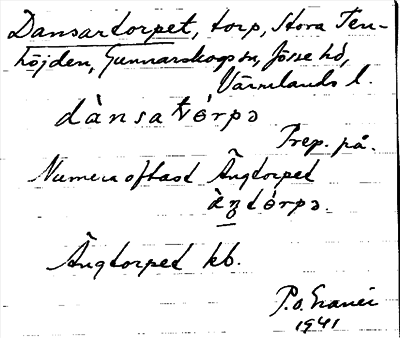 Dansartorpet, torp, Stora Ten-
höjden, Gunnarskogs sn, Jösse hd,
Värmlands l.
dànsatórpə
Prep. på.
Numera oftast Ängtorpet
ä̀ŋtórpə.
Ängtorpet kb.
P.O.
1941